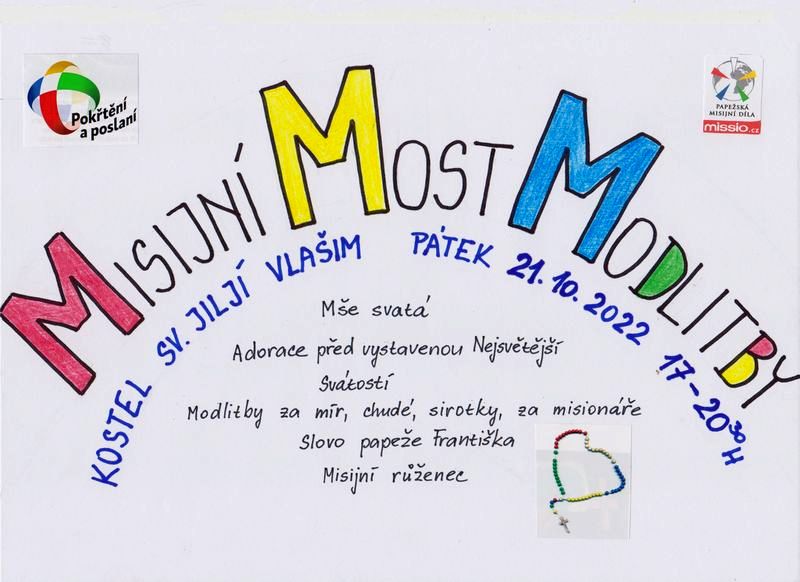 Pokřtění
a poslaní
PAPEŽSKÁ
MISIJNÍ DÍLA
missio.cz
MISIJNÍ MOST MODLITBY
KOSTEL SV. JILJÍ VLAŠIM PÁTEK 21.10.2022 17-20³⁰ H
Mše svatá
Adorace před vystavenou Nejsvětější
Svátostí
Modlitby za mír, chudé, sirotky, za misionáře
Slovo papeže Františka
Misijní růženec